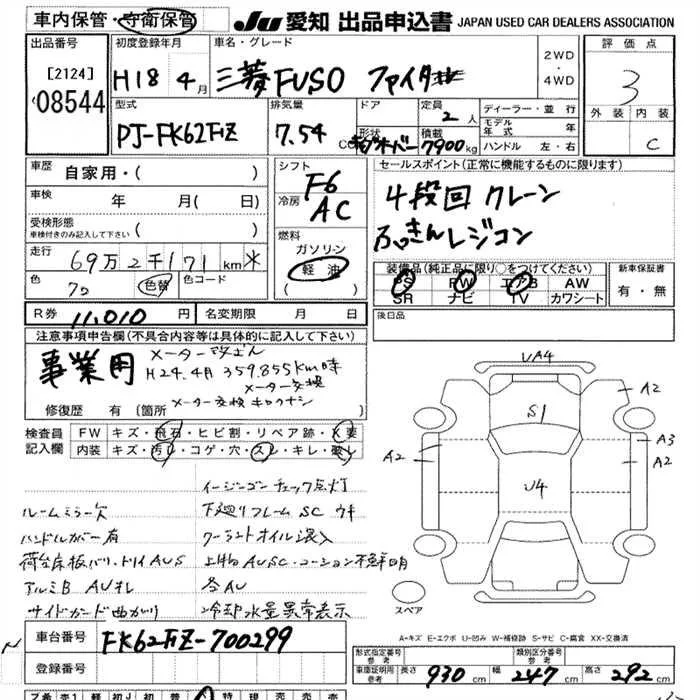 車内保管・守衛保管 JU 愛知 出品申込書 JAPAN USED CAR DEALERS ASSOCIATION
出品番号 初度登録年月 車名・グレード 2WD・4WD 評価点
[2124] H18 4月 三菱FUSO ファイター 3
08544 型式 排気量 ドア 定員 2人 ディーラー・並行 外装 内装
PJ-FK62FZ 7.54 CC 形状 積載 7900kg モデル年式 年 C
ハンドル 左・右
車歴 自家用・( ) シフト F6 セールスポイント(正常に機能するものに限ります)
車検 年 月( 日) 冷房 AC 4段回 クレーン
受検形態 車検付きのみ記入して下さい ( ) 燃料 ラジコン
走行 69万2千171km* ガソリン 装備品(純正品に限り○をつけてください) 新車保証書
色 色替 色コード 軽油 PS PW エアB AW 有・無
( ) SR ナビ TV カワシート
R券 11,010円 名変期限 月 日 後日品
注意事項申告欄(不具合内容等は具体的に記入して下さい)
事業用 メーター改ざん
H24.4月 359.855km時
メーター交換
修復歴 有 [箇所 メーター交換
検査員記入欄 FW キズ・飛石・ヒビ割・リペア跡・X要
内装 キズ・汚レ・コゲ・穴・スレ・キレ・破レ
イージーゴー チェック点灯
ルームミラー欠 下廻りフレームSC ウキ
ハンドルカバー有 クーラントオイル混入
荷台床板バリ・ AUS 上物AUSC・コーション不鮮明
アルミB AUオレ 各AU
サイドガード曲がり 冷却水量異常表示
UA4
S1
A2
A3
A2
A2
U4
スペア
A-キズ E-エクボ U-凹み W-補修跡 S-サビ C-腐食 XX-交換済
車台番号 FK62FZ-700299 形式指定番号 参考 類別区分番号 参考
登録番号 車庫証明用 参考 長さ 930cm 幅 247cm 高さ 292cm